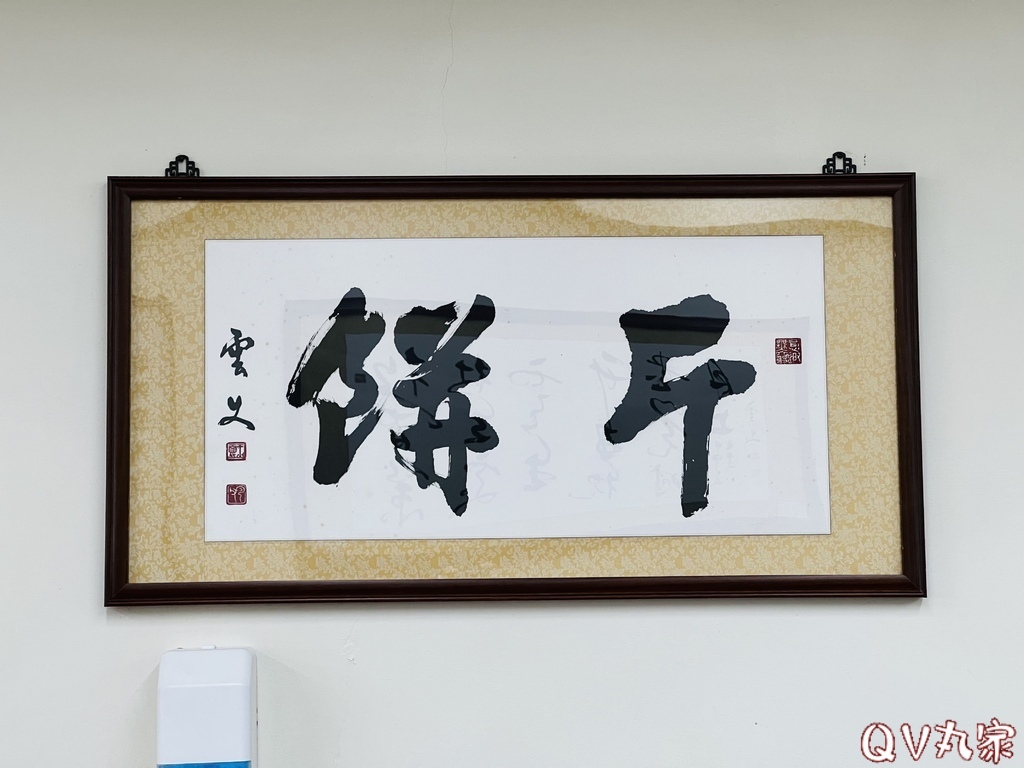 斤餅
雲文
QV丸家